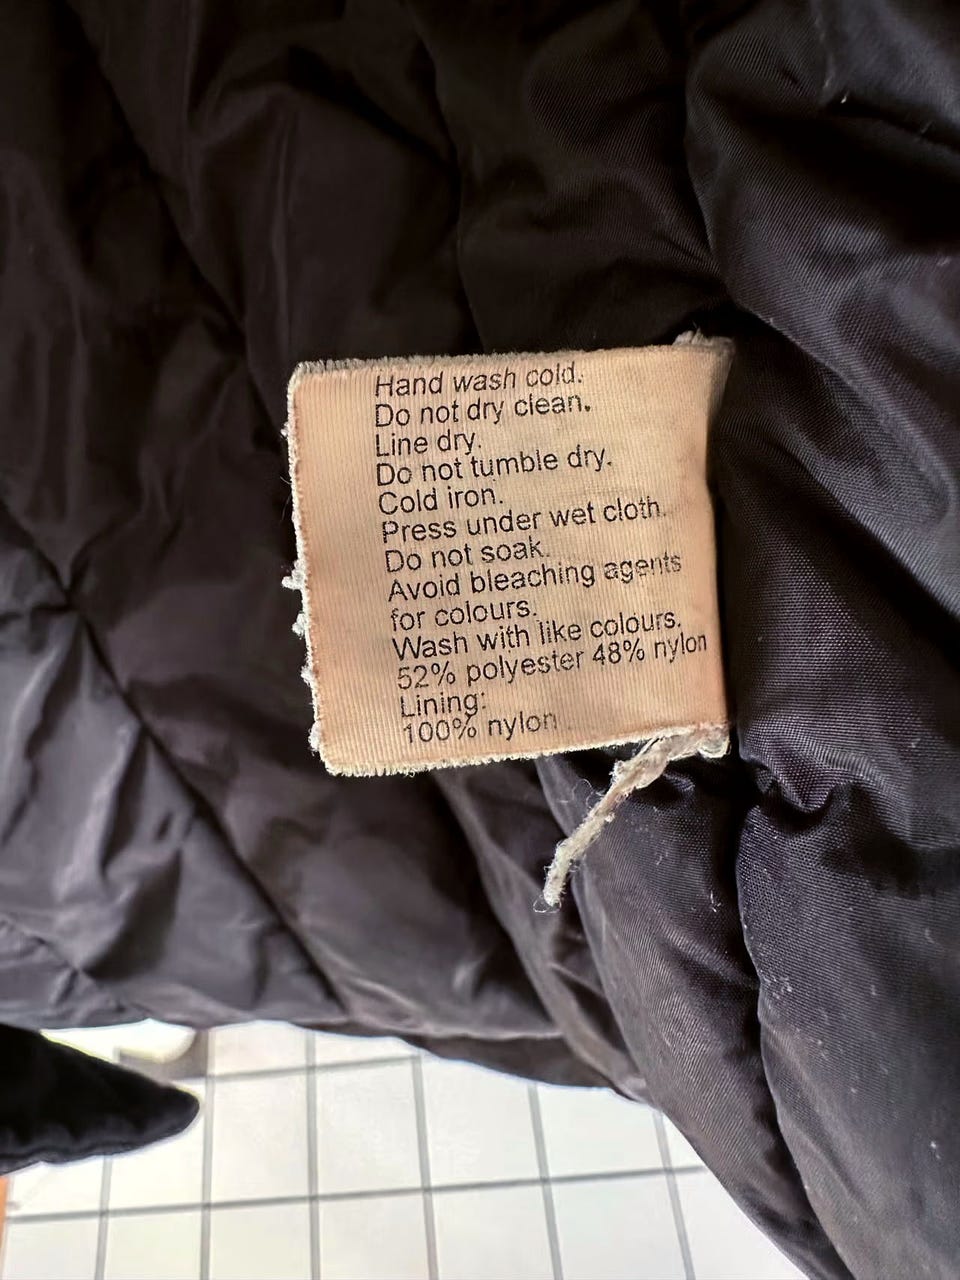 Hand wash cold.
Do not dry clean.
Line dry.
Do not tumble dry.
Cold iron.
Press under wet cloth.
Do not soak.
Avoid bleaching agents
for colours.
Wash with like colours.
52% polyester 48% nylon
Lining:
100% nylon